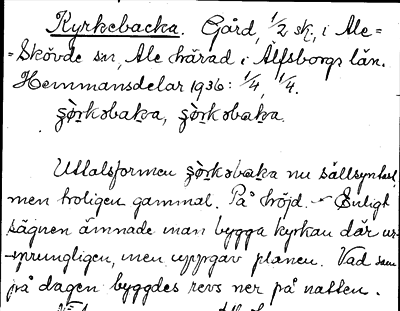 Kyrkebacka. Gård, 1/2 sk, i Ale=
=Skövde sn, Ale härad i Älfsborgs län.
Hemmansdelar 1936: 1/4, 1/4.
Uttalsformen nu sällsynt,
men troligen gammal. På höjd. Enligt
sägnen ämnade man bygga kyrkan där ur-
-sprungligen, men uppgav planen. Vad som
på dagen byggdes revs ner på natten.